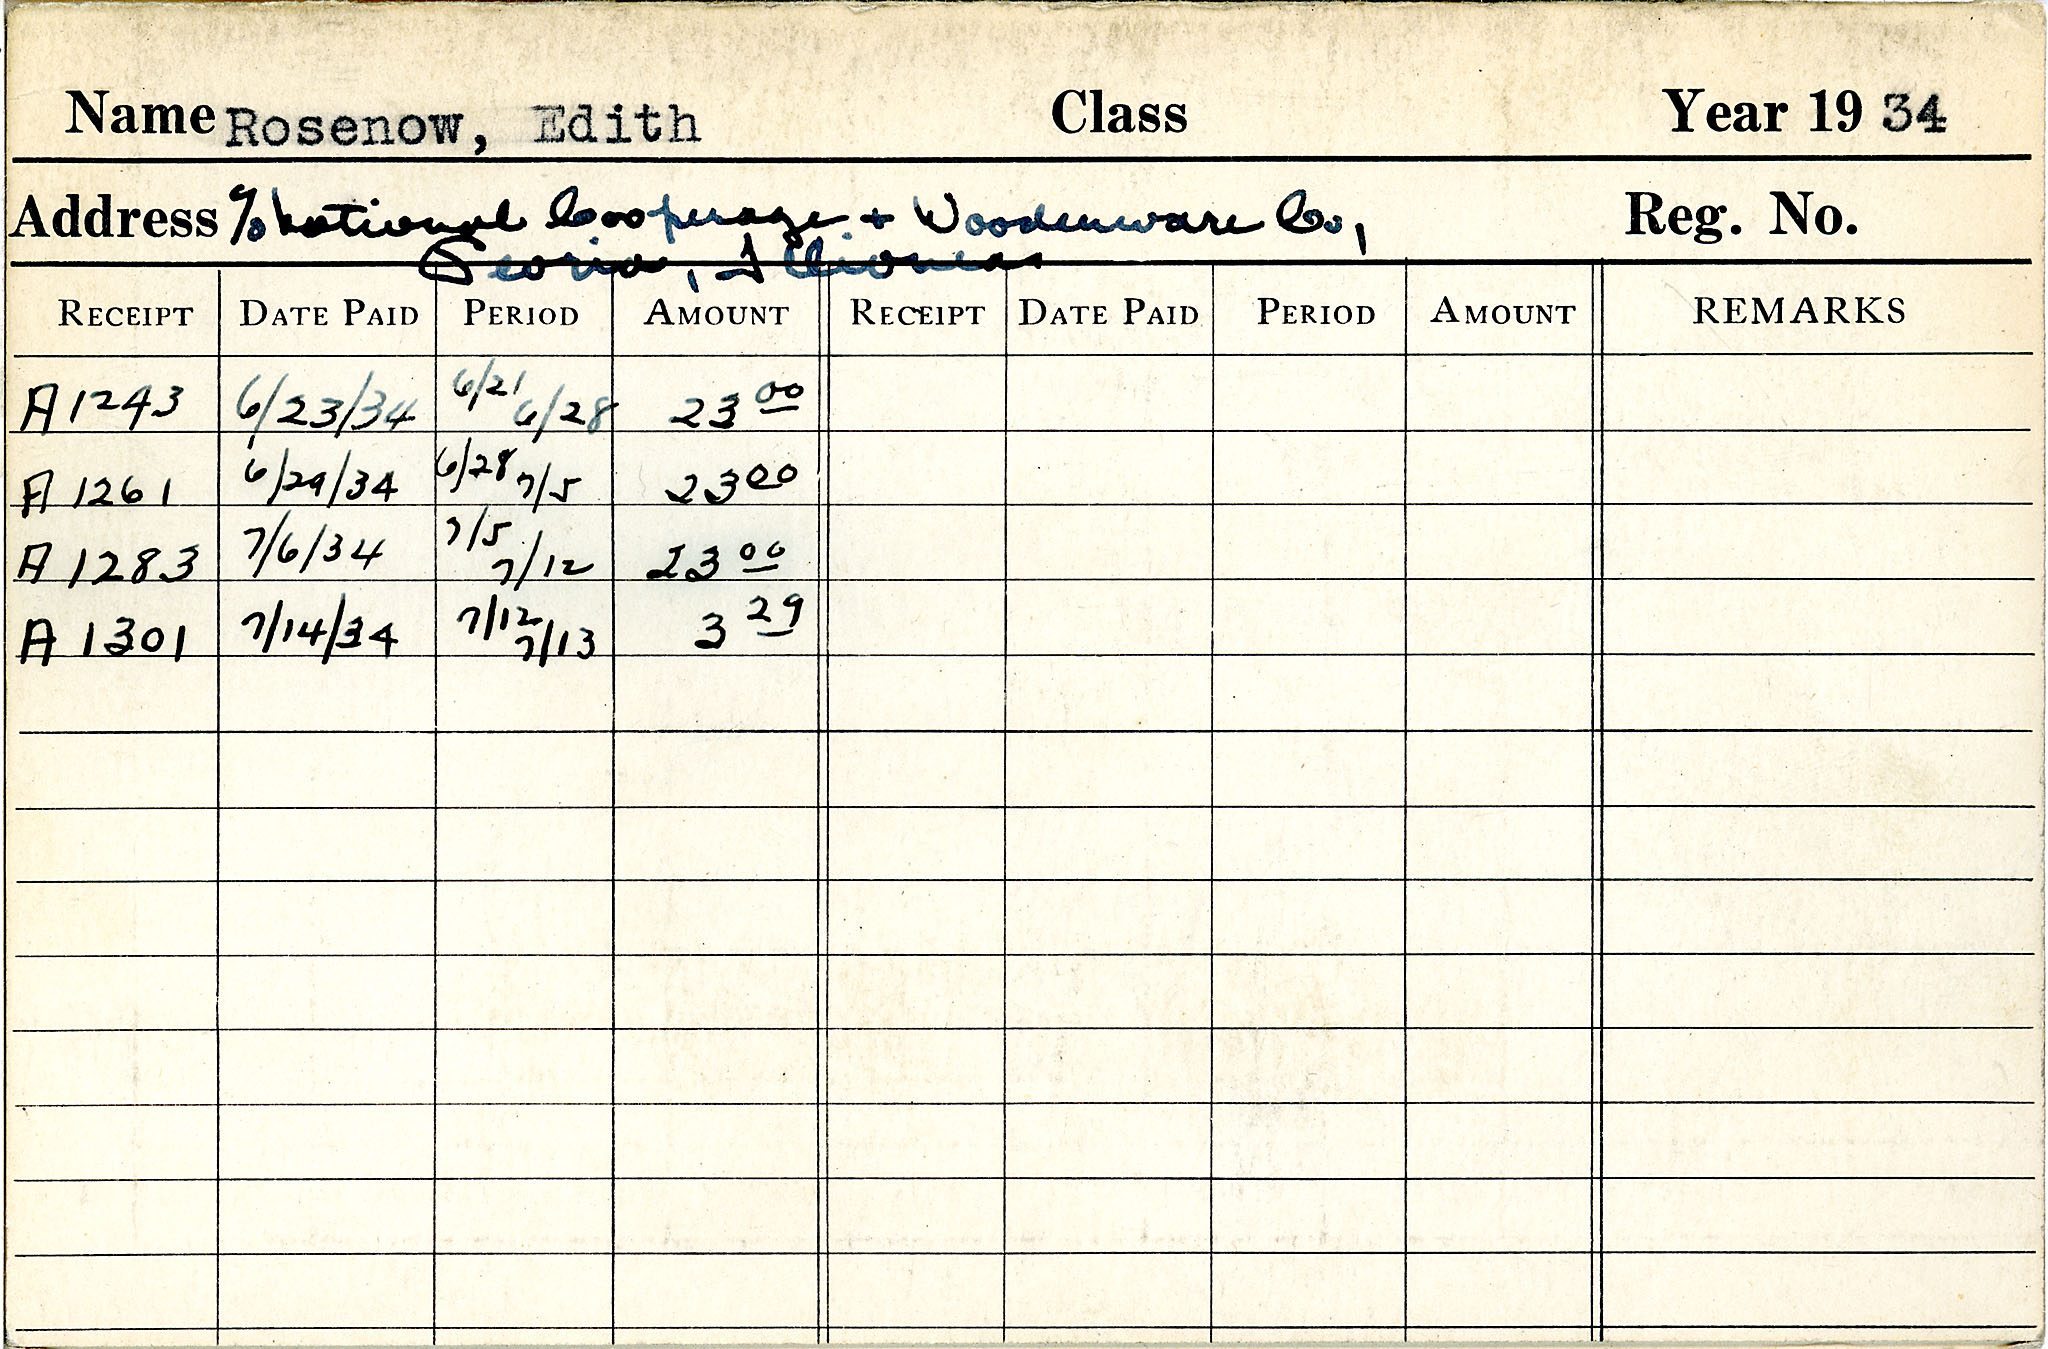 Name Rosenow, Edith Class Year 19 34
Address %o National Cooperage + Woodenware Co,
Reg. No.
Peoria, Illionas
RECEIPT DATE PAID PERIOD AMOUNT RECEIPT DATE PAID PERIOD AMOUNT REMARKS
A 1243 6/23/34 6/21 6/28 23 00
A 1261 6/29/34 6/28 7/5 23 00
A 1283 7/6/34 7/5 7/12 23 00
A 1301 7/14/34 7/12 7/13 3 29